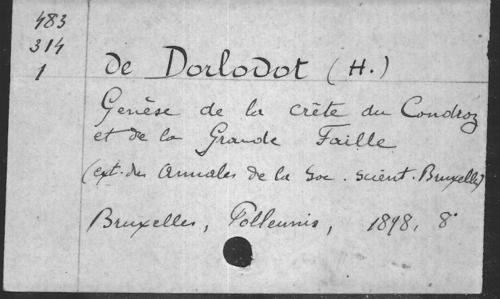 483
314
1
de Dorlodot (H.)
Genèse de la crête du Condroz
et de la Grande Faille
(ext. des Annales de la Soc. scient. Bruxelles)
Bruxelles, Polleunis, 1898, 8°